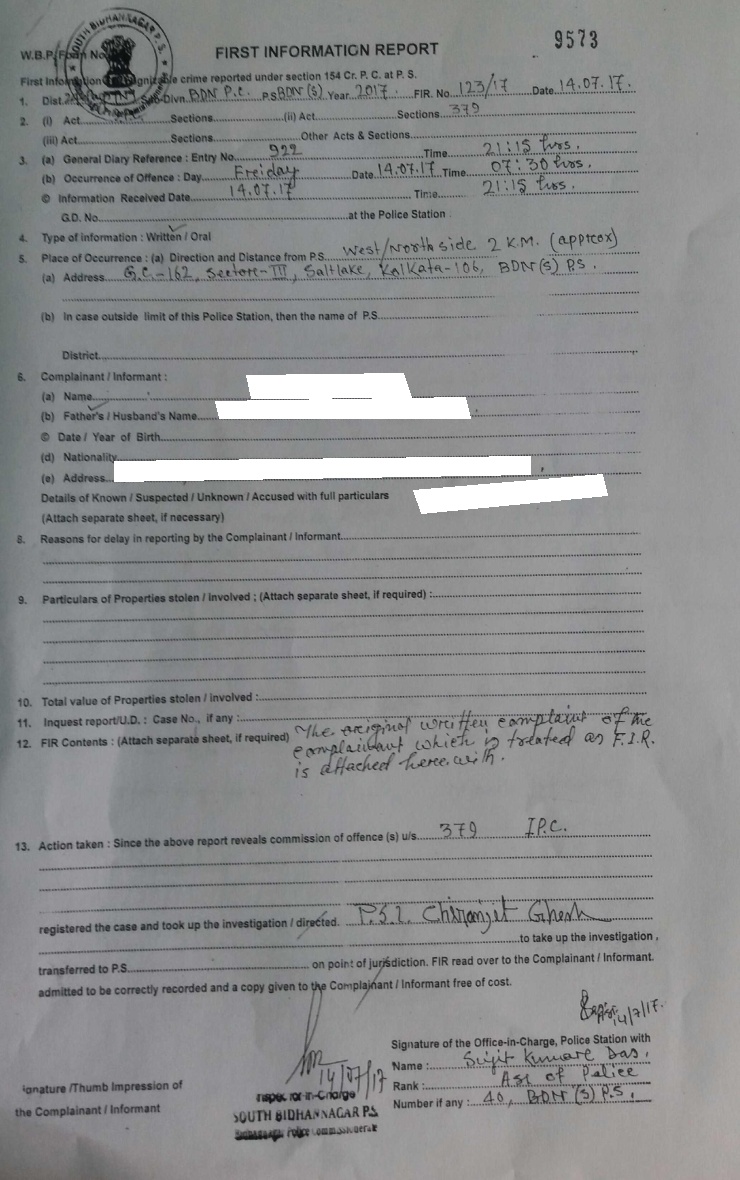 SOUTH BIDHANNAGAR P.S.
W.B.P. Form No
FIRST INFORMATION REPORT
9573
First Information cognizable crime reported under section 154 Cr. P. C. at P. S.
1. Dist. Sub-Divn. BDN P.C. P.S BDN (S) Year 2017 FIR. No. 123/17 Date 14.07.17.
2. (i) Act Sections (ii) Act Sections 379
(iii) Act Sections Other Acts & Sections
3. (a) General Diary Reference : Entry No. 922 Time 21:15 hrs.
(b) Occurrence of Offence : Day Freiday Date 14.07.17 Time 07:30 hrs.
© Information Received Date 14.07.17 Time 21:15 hrs.
G.D. No. at the Police Station :
4. Type of information : Written / Oral
5. Place of Occurrence : (a) Direction and Distance from P.S. West/North side 2 K.M. (approx)
(a) Address G.C-162, Sector-III, Saltlake, Kolkata-106, BDN (S) P.S.
(b) In case outside limit of this Police Station, then the name of P.S.
District
6. Complainant / Informant :
(a) Name
(b) Father's / Husband's Name
© Date / Year of Birth
(d) Nationality
(e) Address
Details of Known / Suspected / Unknown / Accused with full particulars
(Attach separate sheet, if necessary)
8. Reasons for delay in reporting by the Complainant / Informant
9. Particulars of Properties stolen / involved ; (Attach separate sheet, if required) :
10. Total value of Properties stolen / involved :
11. Inquest report/U.D. : Case No., if any :
12. FIR Contents : (Attach separate sheet, if required) The original written complaint of the
complainant which is treated as F.I.R.
is attached here with.
13. Action taken : Since the above report reveals commission of offence (s) u/s 379 IPC.
registered the case and took up the investigation / directed. P.S.I. Chiranjet Ghosh
to take up the investigation ,
transferred to P.S. on point of jurisdiction. FIR read over to the Complainant / Informant.
admitted to be correctly recorded and a copy given to the Complainant / Informant free of cost.
14/7/17.
Signature of the Office-in-Charge, Police Station with
Name : Sujit Kumar Das,
Rank : ASI of Police
Number if any : 40, BDN (S) P.S.
14/07/17
Inspector-in-Charge
SOUTH BIDHANNAGAR P.S.
Bidhannagar Police Commissionerate
ignature /Thumb Impression of
the Complainant / Informant